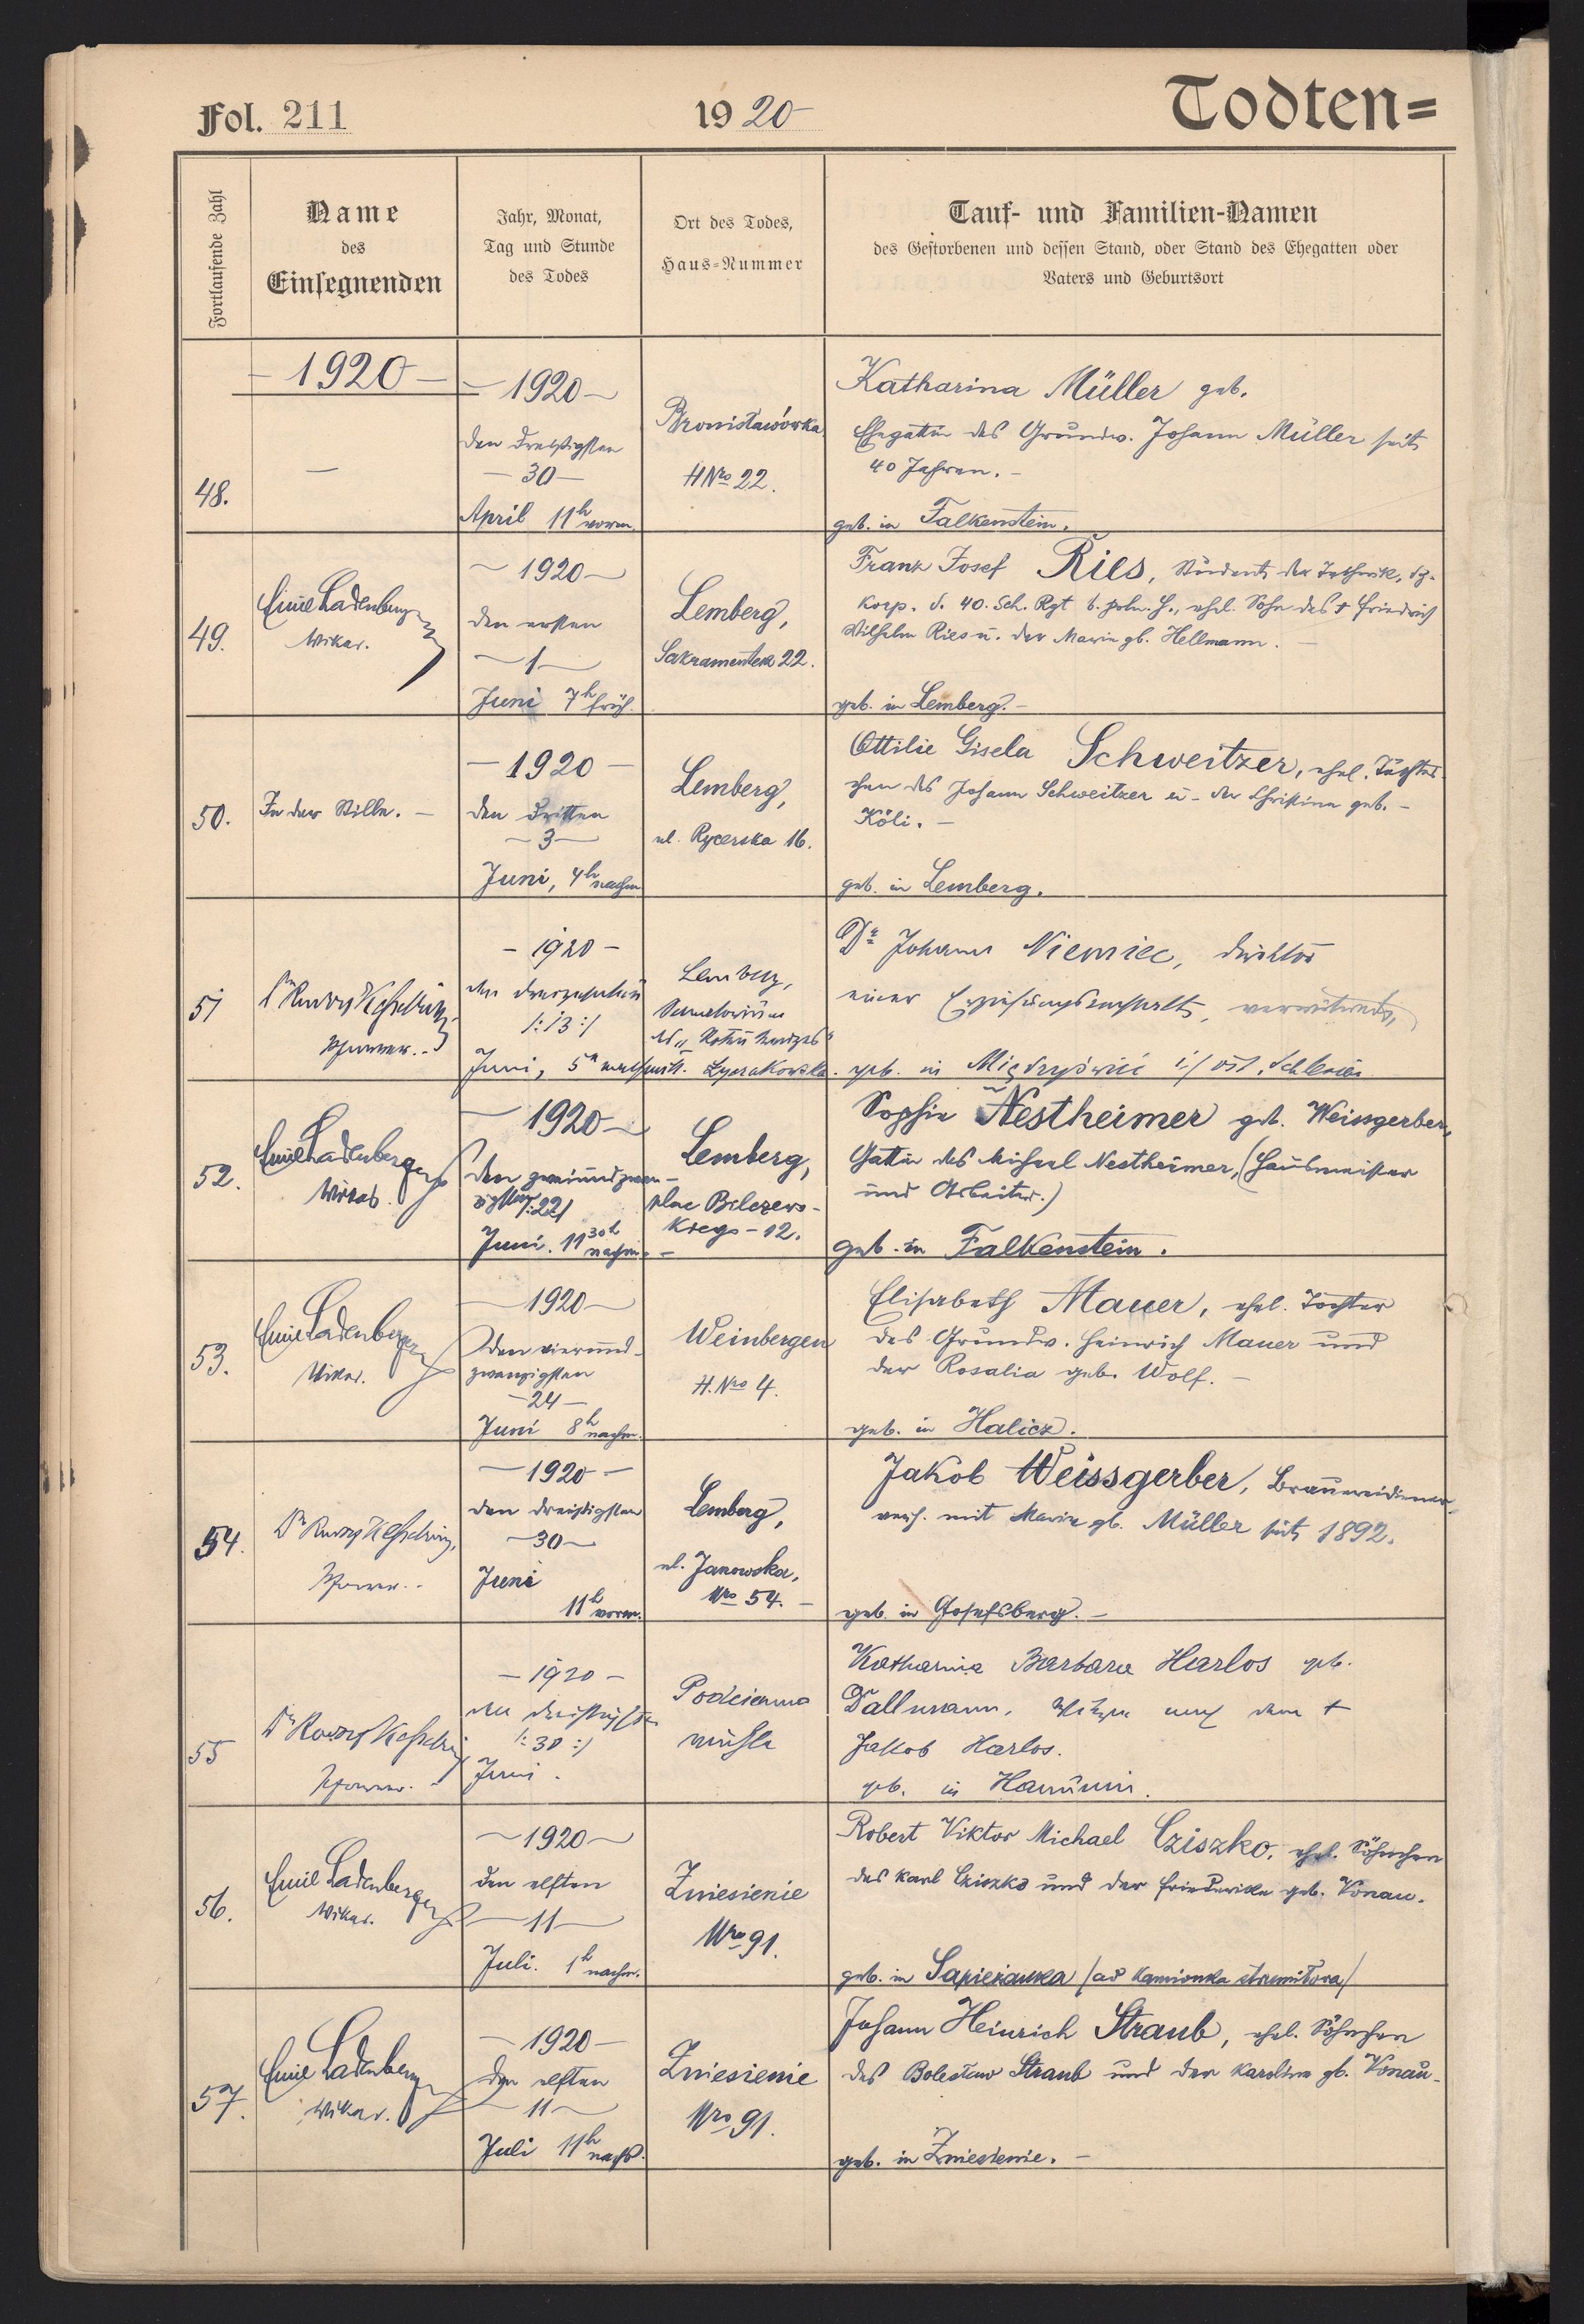 Fol. 211
1920
Todten=
Fortlaufende Zahl
Name
des
Einsegnenden
Jahr, Monat,
Tag und Stunde
des Todes
Ort des Todes,
Haus=Nummer
Tauf- und Familien-Namen
des Gestorbenen und dessen Stand, oder Stand des Ehegatten oder
Vaters und Geburtsort
— 1920 —
48.
—
— 1920 —
den dreißigsten
— 30 —
April 11h vorm.
Bronisławówka
H Nro 22.
Katharina Müller geb.
Ehegattin des Grundw. Johann Müller seit
40 Jahren. —
geb. in Falkenstein.
49.
Emil Ladenberger
Vikar.
— 1920 —
den ersten
— 1 —
Juni 7h früh.
Lemberg,
Sakramentek 22.
Franz Josef Ries, Student der Technik,
Korp. d. 40. Sch. Rgt d. poln. H., ehel. Sohn des † Friedrich
Wilhelm Ries u. der Marie gb. Hellmann. —
geb. in Lemberg. —
50.
In der Stille. —
— 1920 —
den dritten
— 3 —
Juni, 4h nachm
Lemberg,
ul. Rycerska 16.
Ottilie Gisela Schweitzer, ehel. Töchter-
chen des Johann Schweitzer u. der Christine geb. —
Köli. —
geb. in Lemberg.
51
Dr Rudolf Kesselring
Pfarrer. -
- 1920 -
den dreizehnten
/: 13 :/
Juni, 5h nachmitt.
Lemberg,
Sanatorium
Łyczakowska.
Dr Johann Niemiec, Direktor
einer Erziehungsanstalt, verwitwet,
geb. in i/ öst. Schlesien
52.
Emil Ladenberger
Vikar.
— 1920 —
den zweiundzwan-
zigsten /: 22/
Juni. 11 30h nachm. —
Lemberg,
plac Bilczews-
kiego - 12.
Sophie Nestheimer geb. Weissgerber,
Gattin des Michael Nestheimer, (Hausmeister
und Arbeiter.)
geb. in Falkenstein.
53.
Emil Ladenberger
Vikar.
— 1920 —
den vierund-
zwanzigsten
— 24 —
Juni 8h nachm.
Weinbergen
H. Nro 4.
Elisabeth Mauer, ehel. Tochter
des Grundw. Heinrich Mauer und
der Rosalia geb. Wolf. —
geb. in Halicz.
54.
Dr Rudolf Kesselring,
Pfarrer. -
— 1920 —
den dreißigsten
— 30 —
Juni
11h vorm.
Lemberg,
ul. Janowska,
Nro 54. —
Jakob Weissgerber, Brauereidiener,
verh. mit Marie gb. Müller seit 1892.
geb. in Josefsberg. —
55
Dr Rudolf Kesselring
Pfarrer. -
- 1920 -
den dreißigsten
/: 30 :/
Juni.
Podciemno
mühle
Katharina Barbara Harlos geb.
Dallmann, Witwe nach dem †
Jakob Harlos.
geb. in Hanunin.
56.
Emil Ladenberger
Vikar.
— 1920 —
den elften
— 11 —
Juli. 1h nachm.
Zniesienie
Nro 91.
Robert Viktor Michael Cziszko, ehel. Söhnchen
des Karl Cziszko und der Friederike geb. Vonau.
geb. in Sapieżanka /ad Kamionka strumiłowa/
57.
Emil Ladenberger
Vikar.
— 1920 —
den elften
— 11 —
Juli 11h nachts.
Zniesienie
Nro 91.
Johann Heinrich Straub, ehel. Söhnchen
des Bolesław Straub und der Karoline gb. Vonau.
geb. in Zniesienie. —